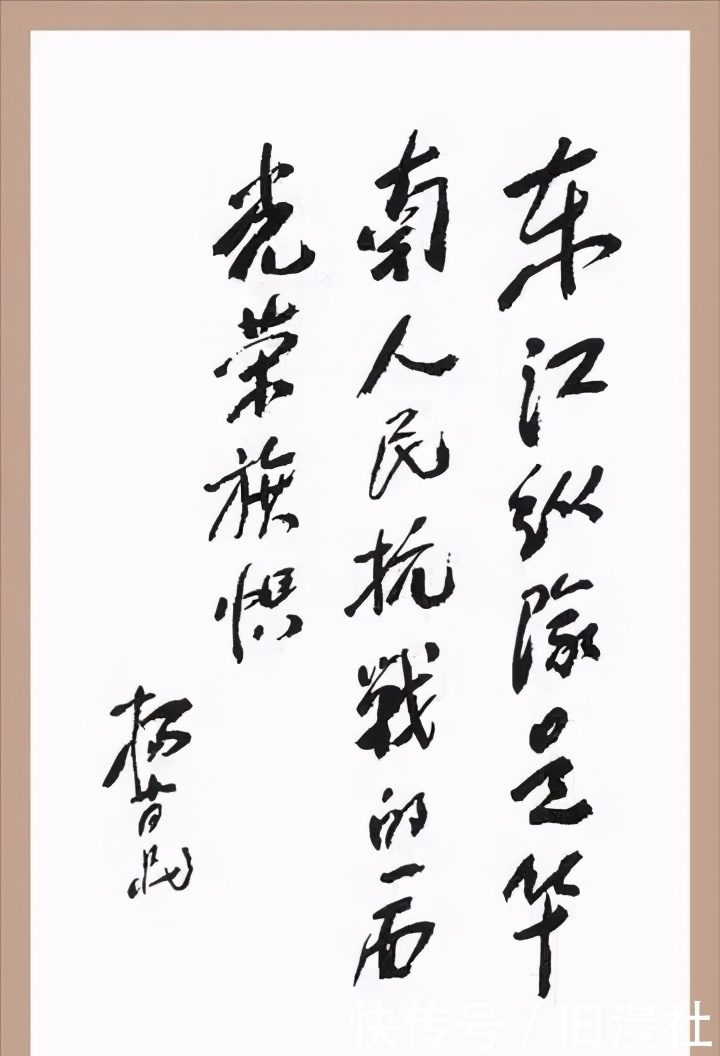 东江纵隊是华
南人民抗戰的一面
光荣旗帜
快传号 / 旧漫社